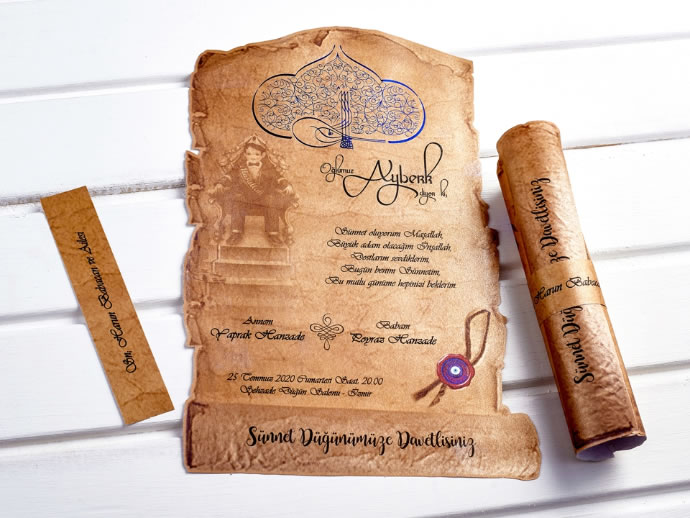 Oğlumuz
Ayberk
diyor ki,
Sünnet oluyorum Maşallah,
Büyük adam olacağım İnşallah,
Dostlarım sevdiklerim,
Bugün benim Sünnetim,
Bu mutlu günüme hepinizi beklerim
Annem
Yaprak Hanzade
Babam
Poyraz Hanzade
25 Temmuz 2020 Cumartesi Saat: 20.00
Şehzade Düğün Salonu - İzmir
Sünnet Düğünümüze Davetlisiniz
Sn. Harun Babacan ve Ailesi
Sünnet Düğ
ze Davetlisiniz
Harun Babaca